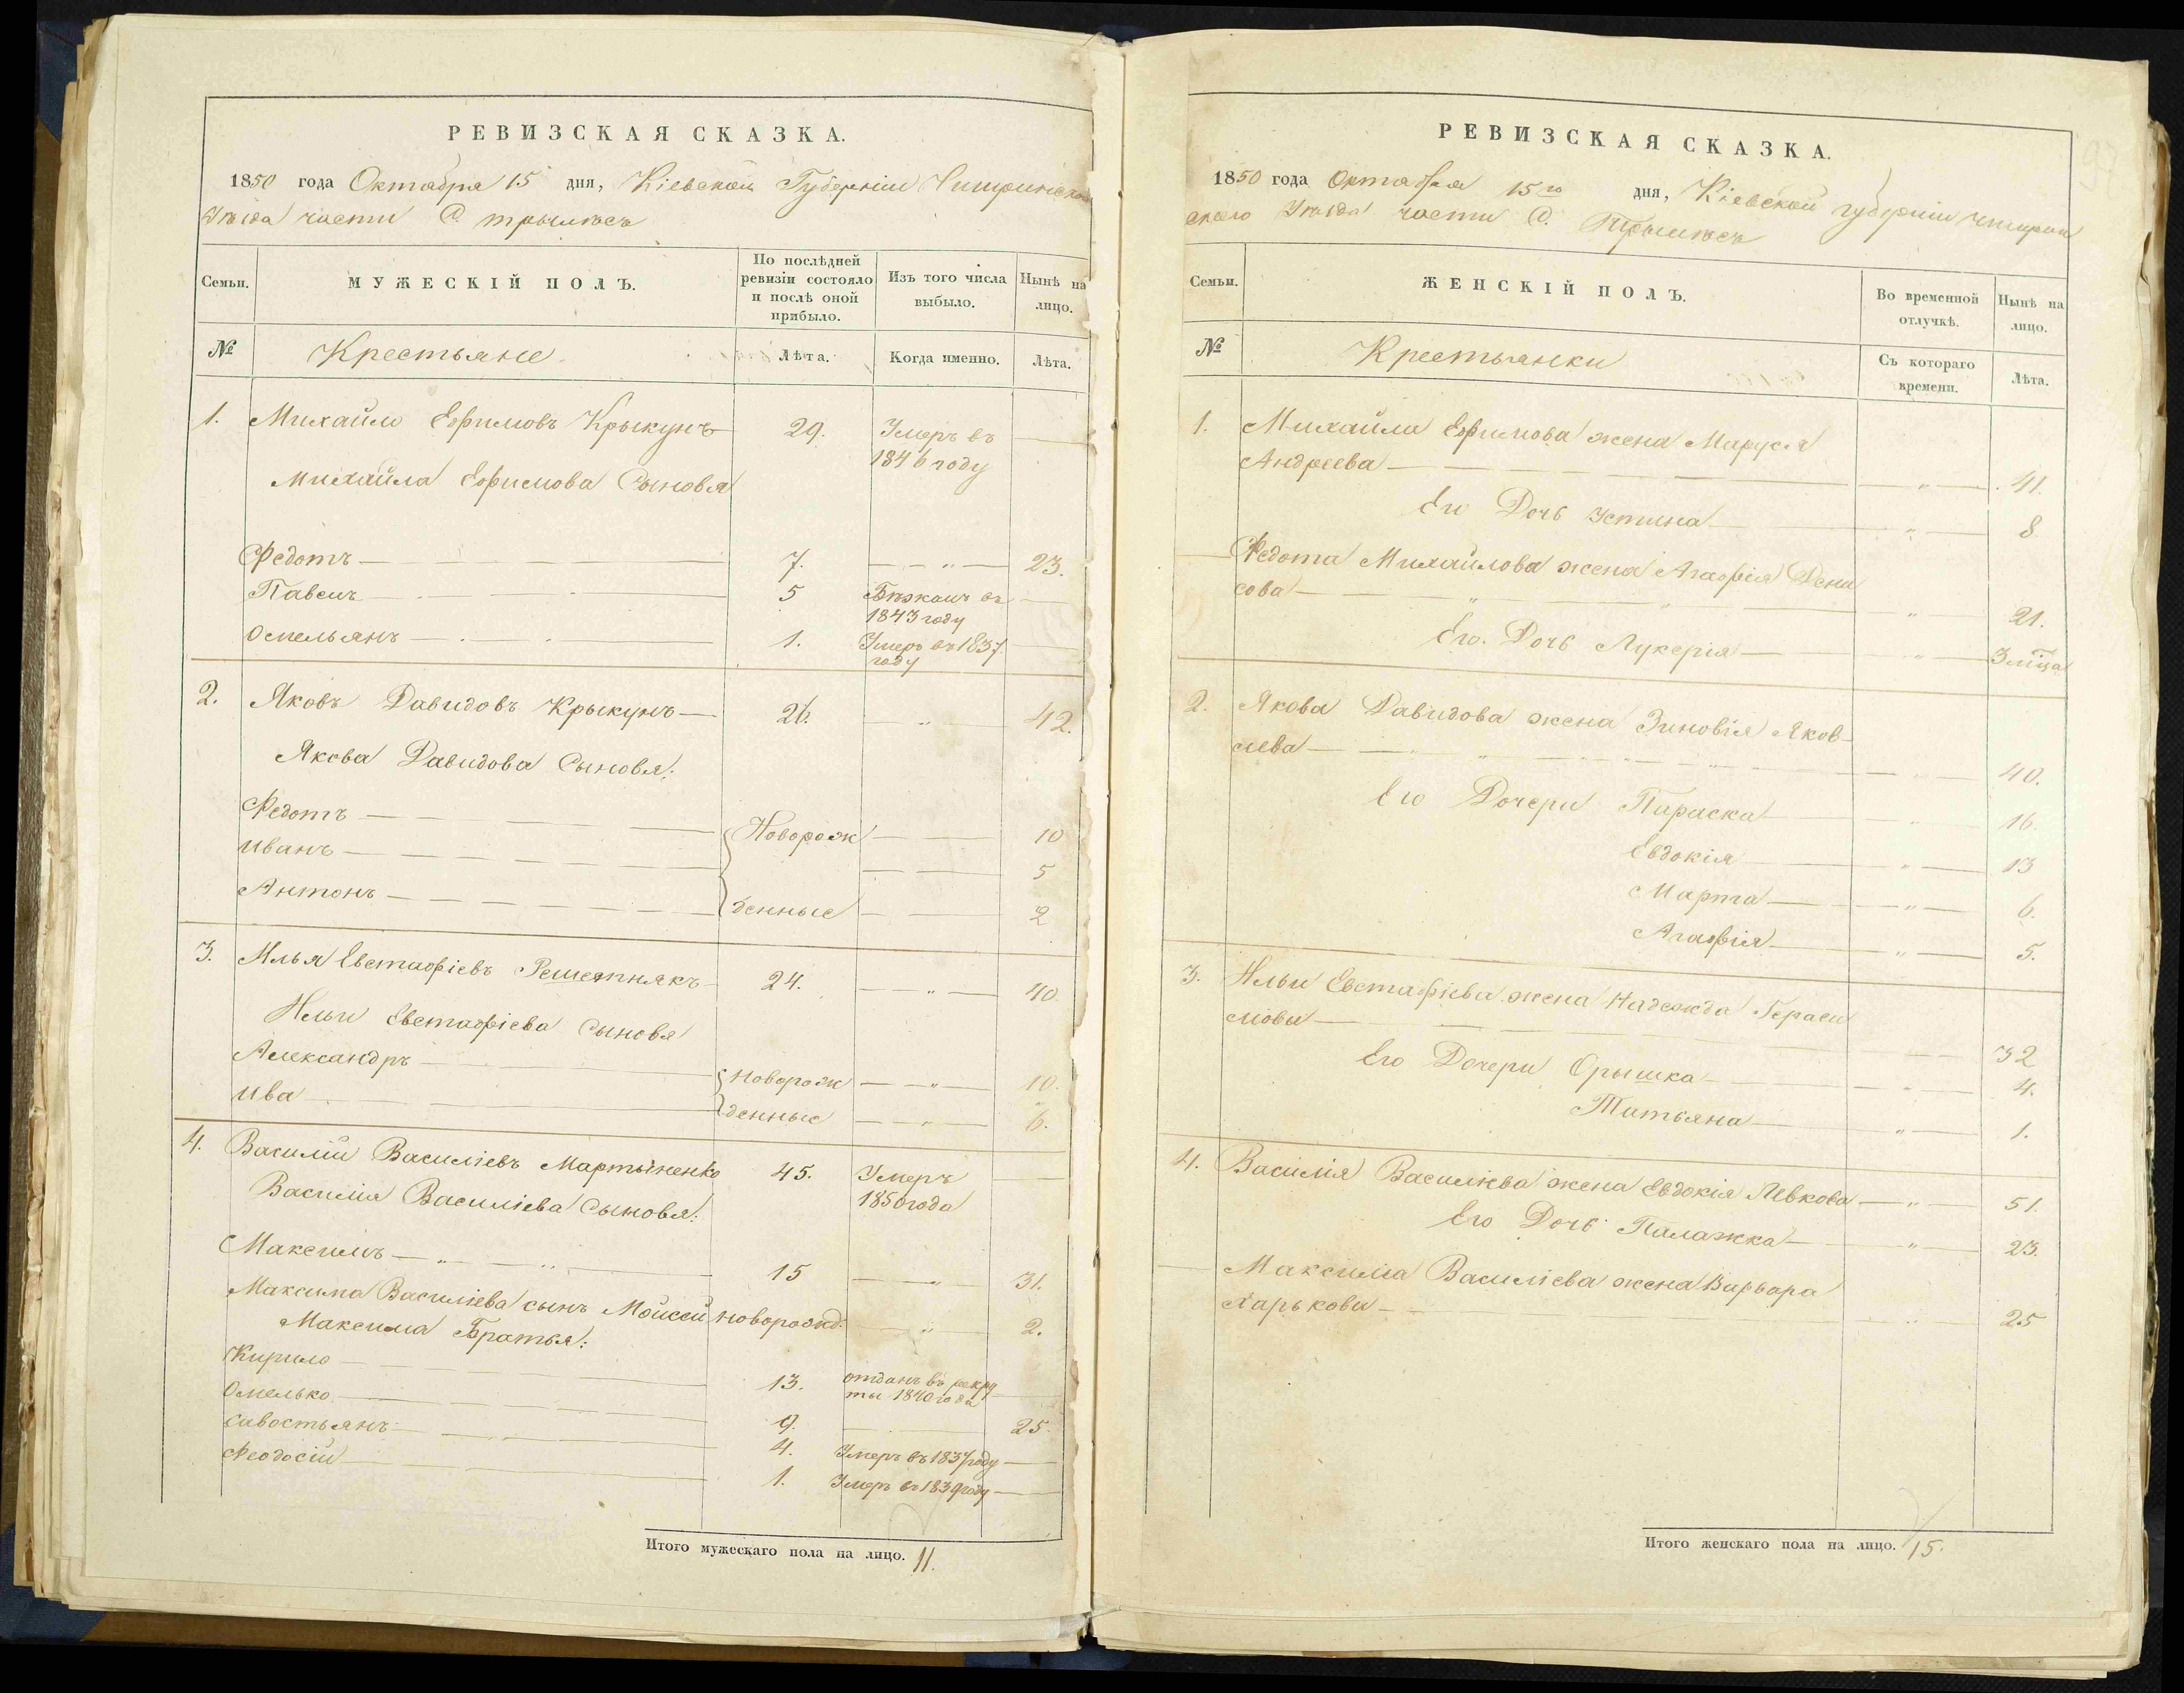 РЕВИЗСКАЯ СКАЗКА.
1850 года Октября 15 дня, Кіевской Губерніи Чигринско
Уѣзда части С. Трылѣсъ
Семьи. МУЖЕСКІЙ ПОЛЪ. По послѣдней ревизіи состояло и послѣ оной прибыло. Изъ того числа выбыло. Нынѣ на лицо.
№ Крестьяне Лѣта. Когда именно. Лѣта.
1. Михайло Ефимовъ Крыкунъ 29. Умеръ въ
1846 году
Михайла Ефимова Сыновья
Федотъ 7. 23.
Павелъ 5 Бѣжалъ въ
1843 году
Омельянъ 1. Умеръ въ 1837
году
2. Яковъ Давидовъ Крыкунъ 26. 42.
Якова Давидова Сыновья:
Федотъ Новорож 10
Иванъ 5
Антонъ денные 2
3. Илья Евстафіевъ Решетнякъ 24. 40.
Ильи Евстафіева Сыновья
Александръ Новорож 10.
Ива денные 6.
4. Василій Василіевъ Мартыненко 45. Умеръ
1850 года
Василія Василіева Сыновья:
Максимъ 15 31.
Максима Василіева сынъ Мойсей новорожд. 2.
Максима Братья:
Кирило 13. отданъ въ рекру
ты 1840 года
Омелько 9. 25.
Савостьянъ 4. Умеръ въ 1837 году
Феодосій 1. Умеръ въ 1839 году
Итого мужескаго пола на лицо. 11.
РЕВИЗСКАЯ СКАЗКА.
1850 года Октября 15го дня, Кіевской губерніи Чигрин
скаго Уѣзда части С. Трылѣсъ
Семьи. ЖЕНСКІЙ ПОЛЪ. Во временной отлучкѣ. Нынѣ на лицо.
№ Крестьянки Съ котораго времени. Лѣта.
1. Михайла Ефимова жена Маруся
Андреева 41.
Его Дочь Устина 8
Федота Михайлова жена Агафія Дени
сова 21.
Его Дочь Лукерія 3 мца
2. Якова Давидова жена Зиновія Яков-
лева 40.
Его Дочери Параска 16.
Евдокія 13
Марта 6.
Агафія 5.
3. Ильи Евстафіева жена Надежда Гераси
мова 32
Его Дочери Орышка 4.
Татьяна 1.
4. Василія Василіева жена Евдокія Левкова 51.
Его Дочь Палажка 23.
Максима Василіева жена Варвара
Харькова 25
Итого женскаго пола на лицо. 15.